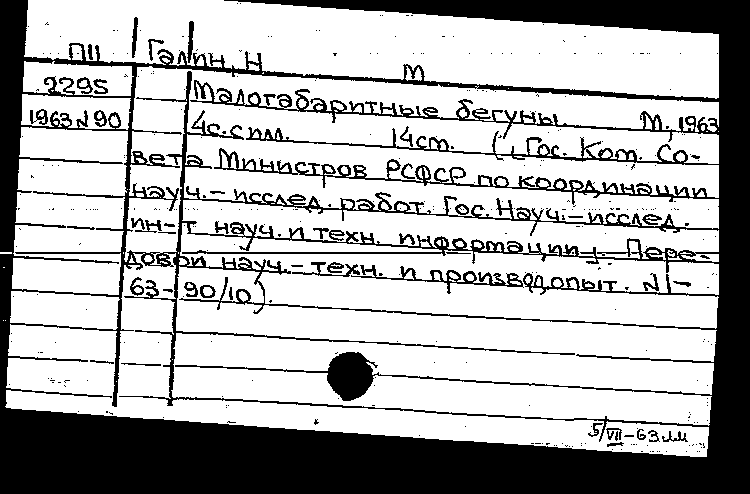 ПII Галин, Н М
2295 Малогабаритные бегуны. М., 1963
1963 N 90 4с. с илл. 14 cm. (Гос. Ком. Со-
вета Министров РСФСР по координации
науч.-исслед. работ. Гос. Науч.-исслед.
ин-т науч. и техн. информации. Пере-
довой науч.-техн. и производ. опыт. N 1-
63-90/10).
5/VII-63